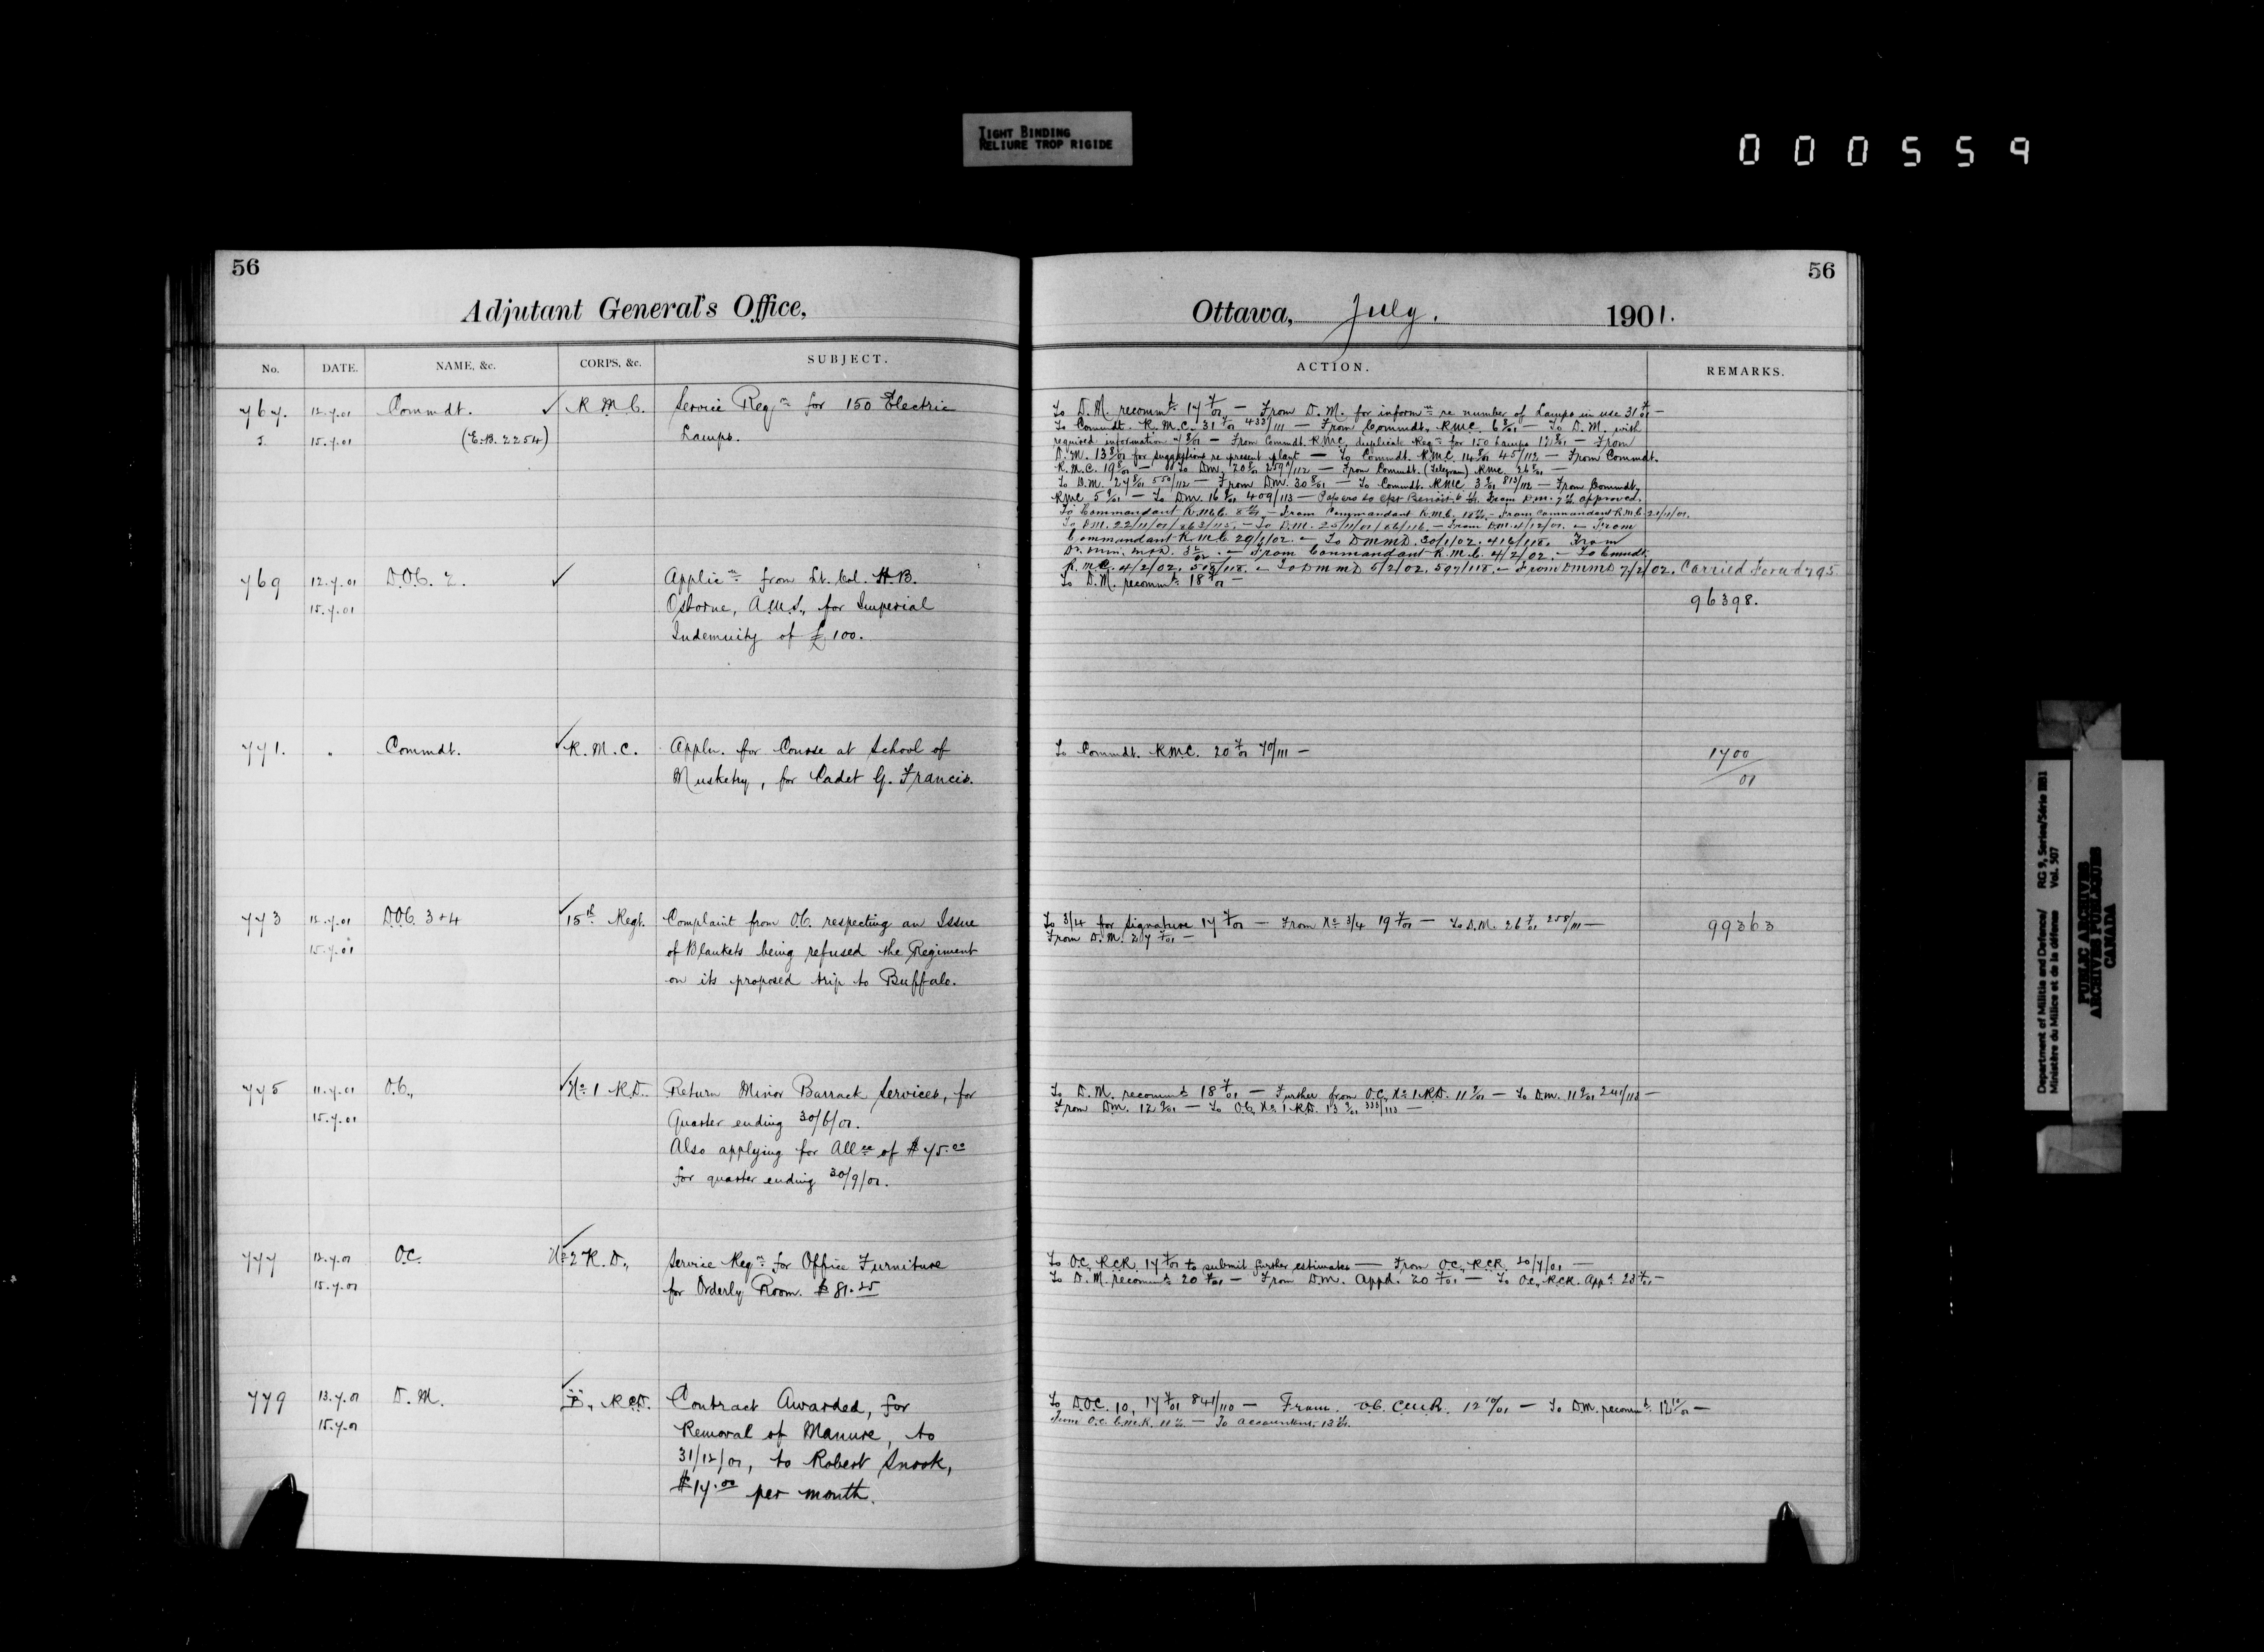 TIGHT BINDING
RELIURE TROP RIGIDE
000559
56
Adjutant General's Office,
No. DATE. NAME, &c. CORPS, &c. SUBJECT.
767. 12.7.01 Commdt. ✓ R.M.C. Service Reqn for 150 Electric
15.7.01 (E.B. 2254) Lamps.
769 12.7.01 D.O.C. 2. ✓ Applicn from Lt. Col. H.B.
15.7.01 Osborne, A.M.S., for Imperial
Indemnity of £100.
771. " Commdt. ✓ R.M.C. Appln. for Course at School of
Musketry, for Cadet G. Francis.
773 12.7.01 D.O.C. 3+4 ✓ 15th Regt. Complaint from O.C. respecting an Issue
15.7.01 of Blankets being refused the Regiment
on its proposed trip to Buffalo.
775 11.7.01 O.C., ✓ No 1 R.D. Return Minor Barrack Services, for
15.7.01 Quarter ending 30/6/01.
Also applying for Allce of $75.00
for quarter ending 30/9/01.
777 12.7.01 O.C. ✓ No 2 R.D., Service Reqn for Office Furniture
15.7.01 for Orderly Room. $81.25
779 13.7.01 D.M. ✓ "B", R.C.D. Contract Awarded, for
15.7.01 Removal of Manure, to
31/12/01, to Robert Snook,
$17.00 per month.
56
Ottawa, July. 1901.
ACTION. REMARKS.
To D.M. recommd 17 7/01 — From D.M. for informn re number of Lamps in use 31 7/01 —
To Commdt. R.M.C. 31 7/01 433/111 — From Commdt. RMC. 6 8/01 — To D.M. with
required information 7 8/01 — From Commdt. RMC, duplicate Reqn for 150 Lamps 12 8/01 — From
D.M. 13 8/01 for suggestions re present plant — To Commdt. R.M.C. 14 8/01 45/112 — From Commdt.
R.M.C. 19 8/01 — To DM, 20 8/01 259/112 — From Commdt. (Telegram) RMC. 26 8/01 —
To D.M. 27 8/01 550/112 — From DM. 30 8/01 — To Commdt. RMC 3 9/01 813/112 — From Commdt,
RMC 5 9/01 — To DM. 16 9/01 409/113 — From DM. approved.
To Commandant R.M.C. — From Commandant R.M.C. — From Commandant R.M.C. 21/11/01.
To D.M. 22/11/01/263/115. — To D.M. 25/11/01/26/116. — From D.M. 4/12/01. — From
Commandant R.M.C 29/1/02. — To DMMD. 30/1/02. 416/118. From
Commandant R.M.C. 4/2/02. — To Comndt.
R.M.C. 4/2/02. — To DMMD 5/2/02. 597/118. — From DMMD 7/2/02. Carried Forwd 795.
To D.M. recommd 18 7/01 —
96398.
To Commdt. RMC. 20 7/01 70/111 — 1700
/01
To 3/4 for signature 17 7/01 — From No 3/4 19 7/01 — To D.M. 26 7/01 258/111 — 99363
From D.M. 27 7/01 —
To D.M. recommd 18 7/01 — Further from O.C, No 1 R.D. 11 9/01 — To D.M. 11 9/01 241/113 —
From DM. 12 9/01 — To OC, No 1 R.D. 13 9/01 333/113 —
To O.C. R.C.R. 17 7/01 to submit further estimates — From O.C., R.C.R. 20/7/01 —
To D.M. recommd 20 7/01 — From D.M. appd. 20 7/01 — To O.C., R.C.R. Appd 23 7/01 —
To D.O.C. 10, 17 7/01 841/110 — From O.C. CMR. 12 10/01 — To D.M. recommd. 12 10/01 —
From O.C. C.M.R. — To Accountant,
Department of Militia and Defence/ RG 9, Series/Série IIB1
Ministère du Milice et de la défense Vol. 507
PUBLIC ARCHIVES
ARCHIVES PUBLIQUES
CANADA